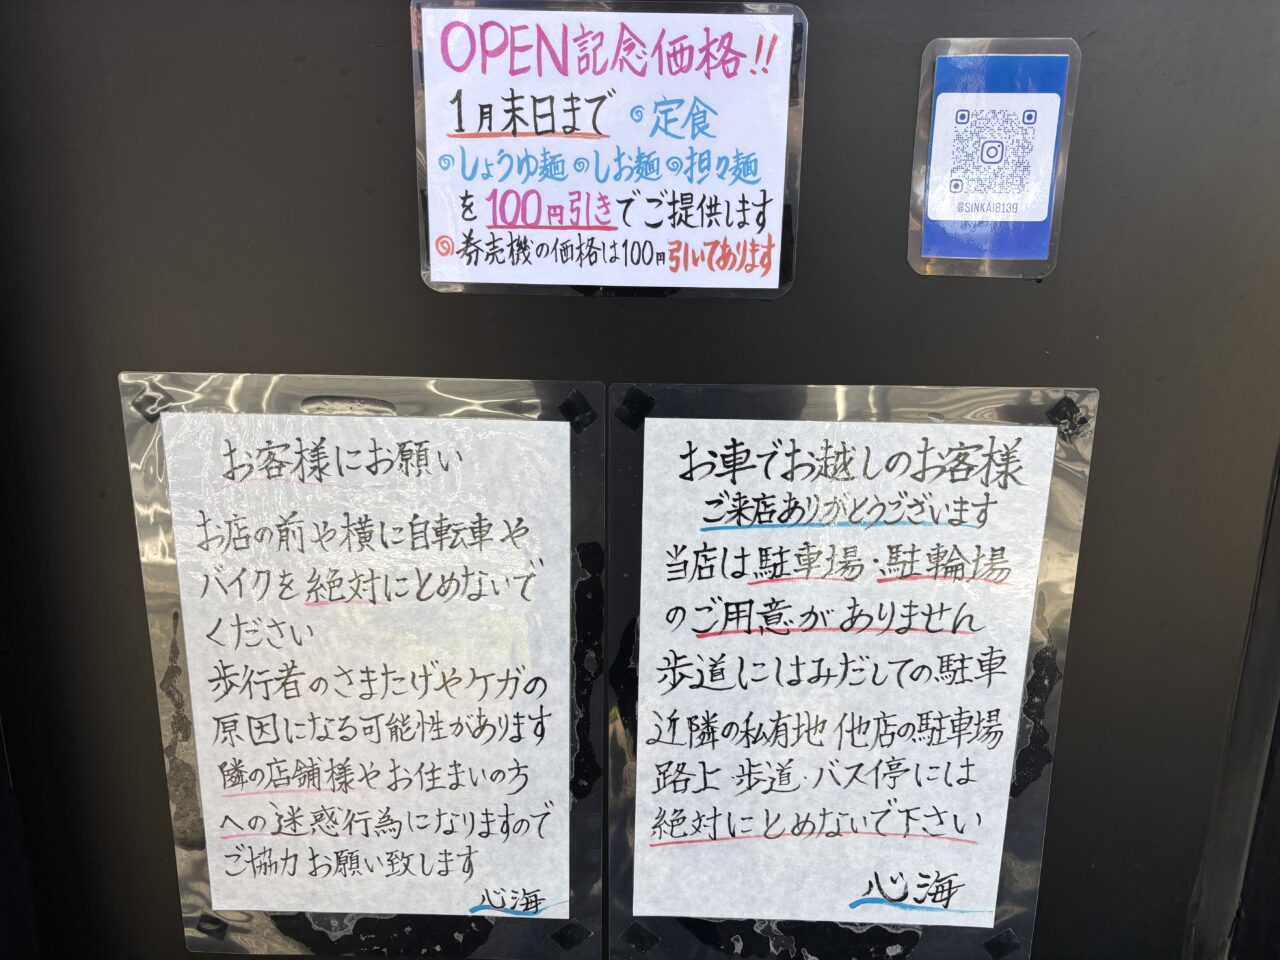 OPEN記念価格!!
1月末日まで ◎定食
◎しょうゆ麺◎しお麺◎担々麺
を100円引きでご提供します
◎券売機の価格は100円引いてあります
@SINKAI8139
お客様にお願い
お店の前や横に自転車や
バイクを絶対にとめないで
ください
歩行者のさまたげやケガの
原因になる可能性があります
隣の店舗様やお住まいの方
への迷惑行為になりますので
ご協力お願い致します
心海
お車でお越しのお客様
ご来店ありがとうございます
当店は駐車場・駐輪場
のご用意がありません
歩道にはみだしての駐車
近隣の私有地 他店の駐車場
路上・歩道・バス停には
絶対にとめないで下さい
心海